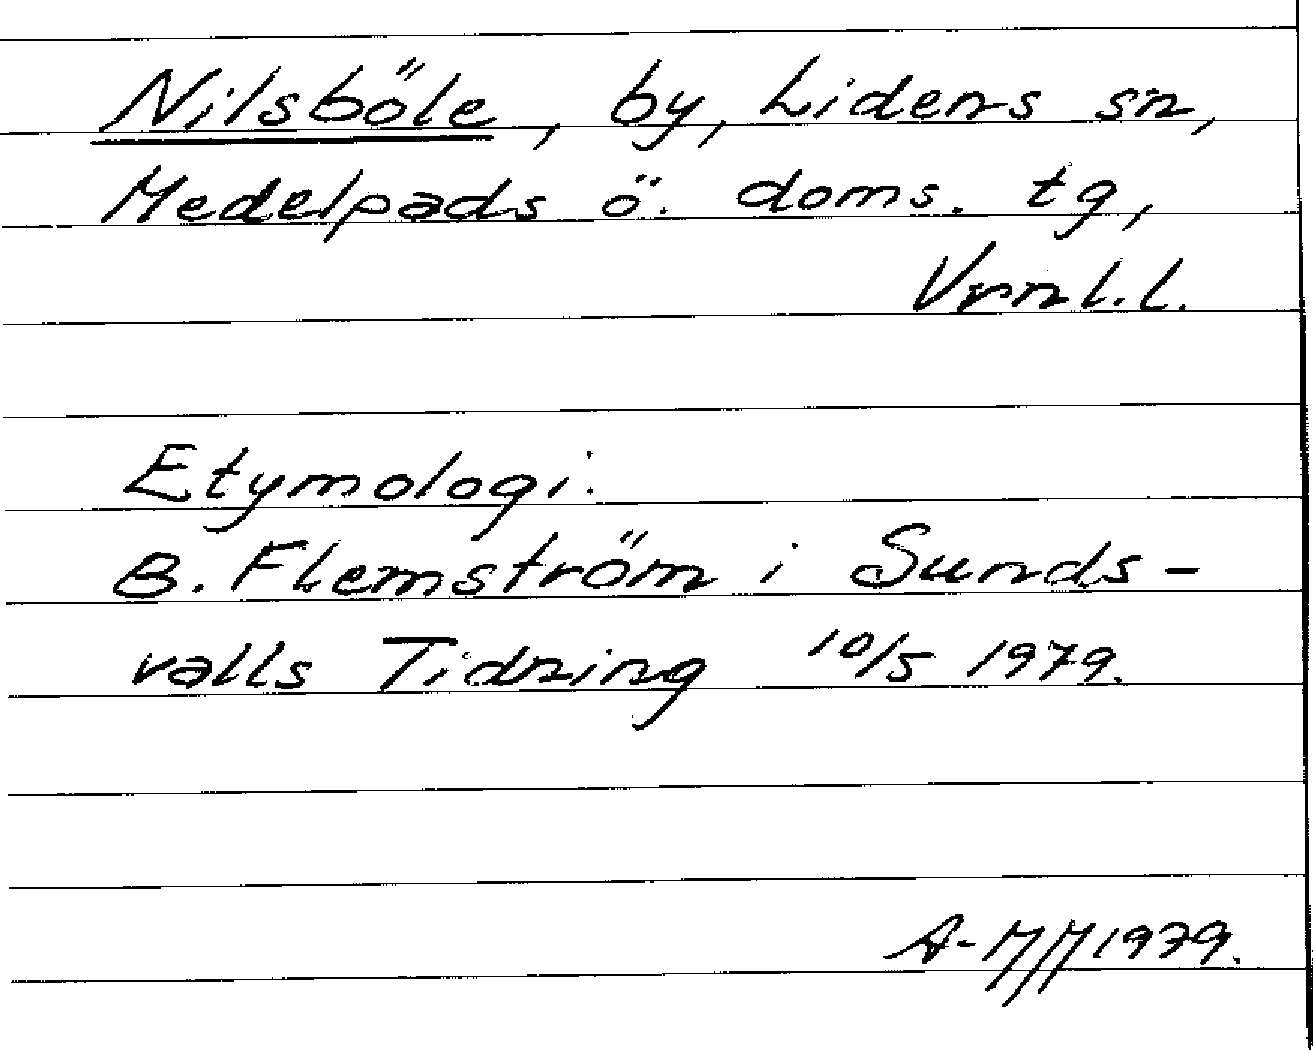 Nilsböle, by, Lidens sn,
Medelpads ö. doms. tg,
Vrnl.l.
Etymologi:
B. Flemström i Sunds-
valls Tidning 10/5 1979.
1979.